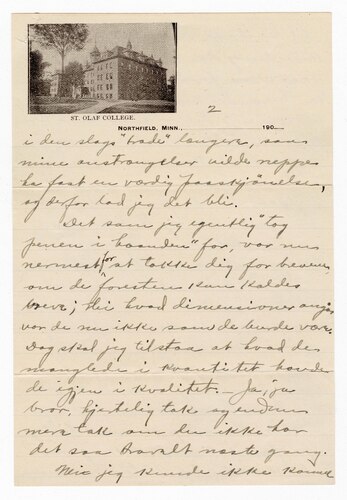 ST. OLAF COLLEGE.
2
NORTHFIELD, MINN. 190
i den slags "trade" længere, saa
mine anstrængelser vilde neppe
ha faat en værdig paaskjønnelse,
og derfor lod jeg det bli.
Det som jeg egentlig "tog
pennen i haanden" for, var nu
nermest for at takke dig for brevene
om de foresten kan kaldes
breve; thi hvad dimensioner angaar
var de nu ikke som de burde være.
Dog skal jeg tilstaa at hvad de
manglede i kvantitet havde
de igjen i kvalitet. Ja, ja
bror, hjertelig tak og endnu
mere tak om du ikke har
det saa travelt næste gang.
jeg kunde ikke komme